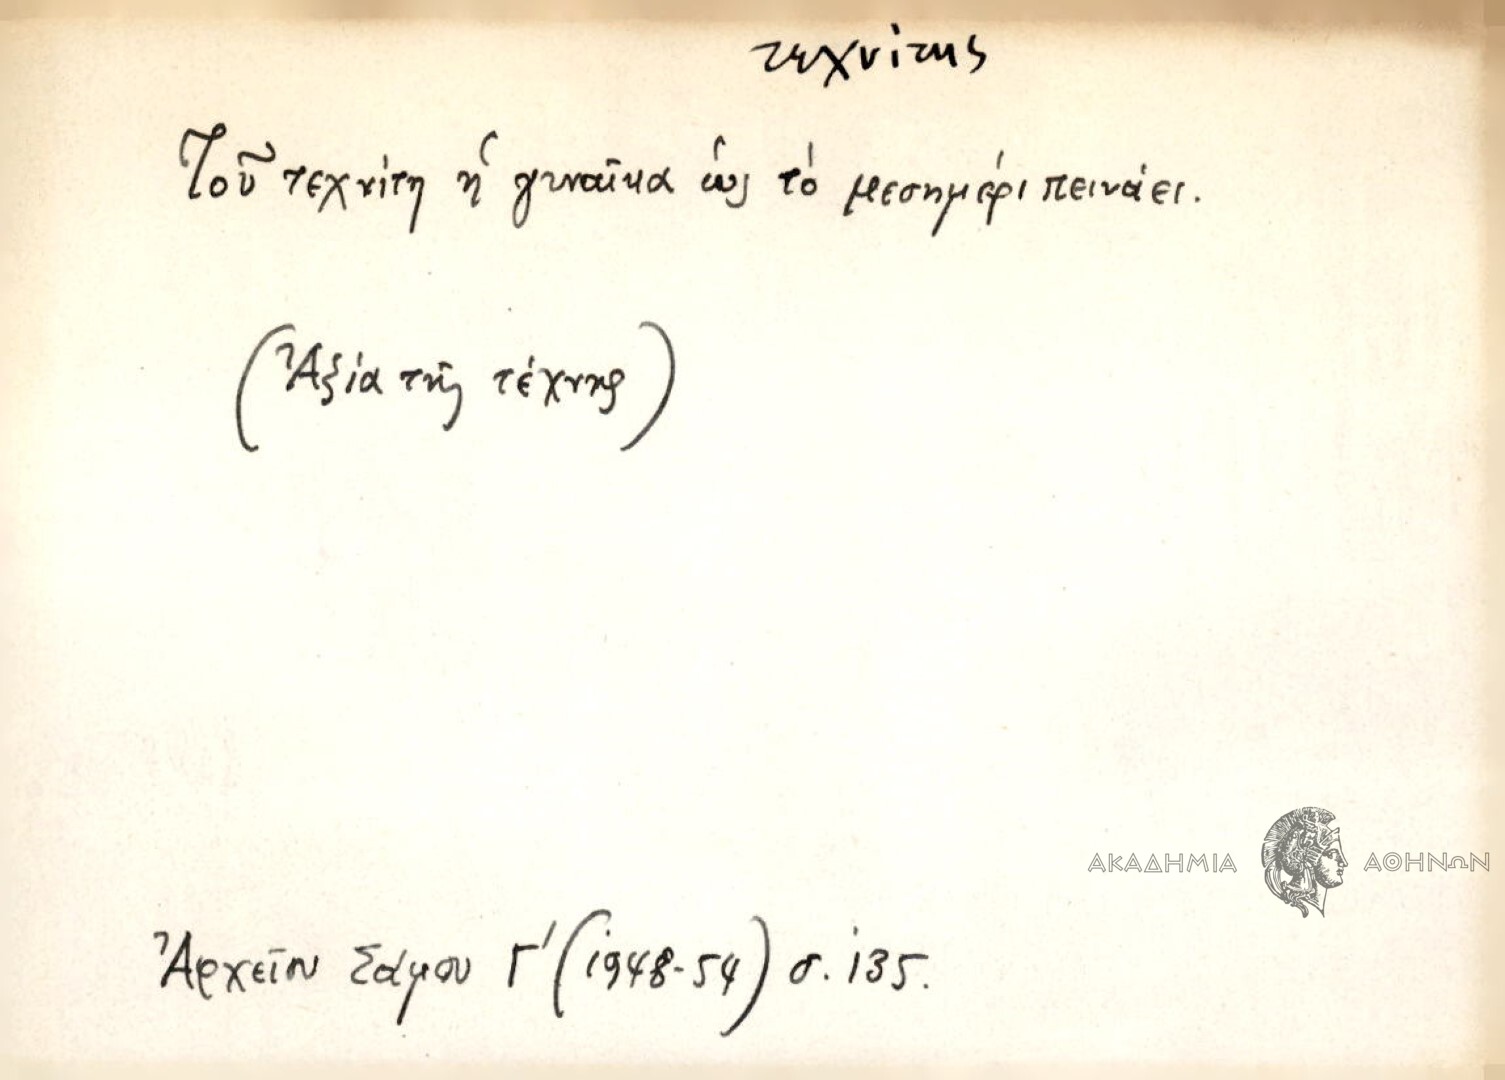 τεχνίτης
Τοῦ τεχνίτη ἡ γυναῖκα ὡς τὸ μεσημέρι πεινάει.
(Ἀξία τῆς τέχνης)
ΑΚΑΔΗΜΙΑ ΑΘΗΝΩΝ
Ἀρχεῖον Σάμου Γ' (1948-54) σ. 135.